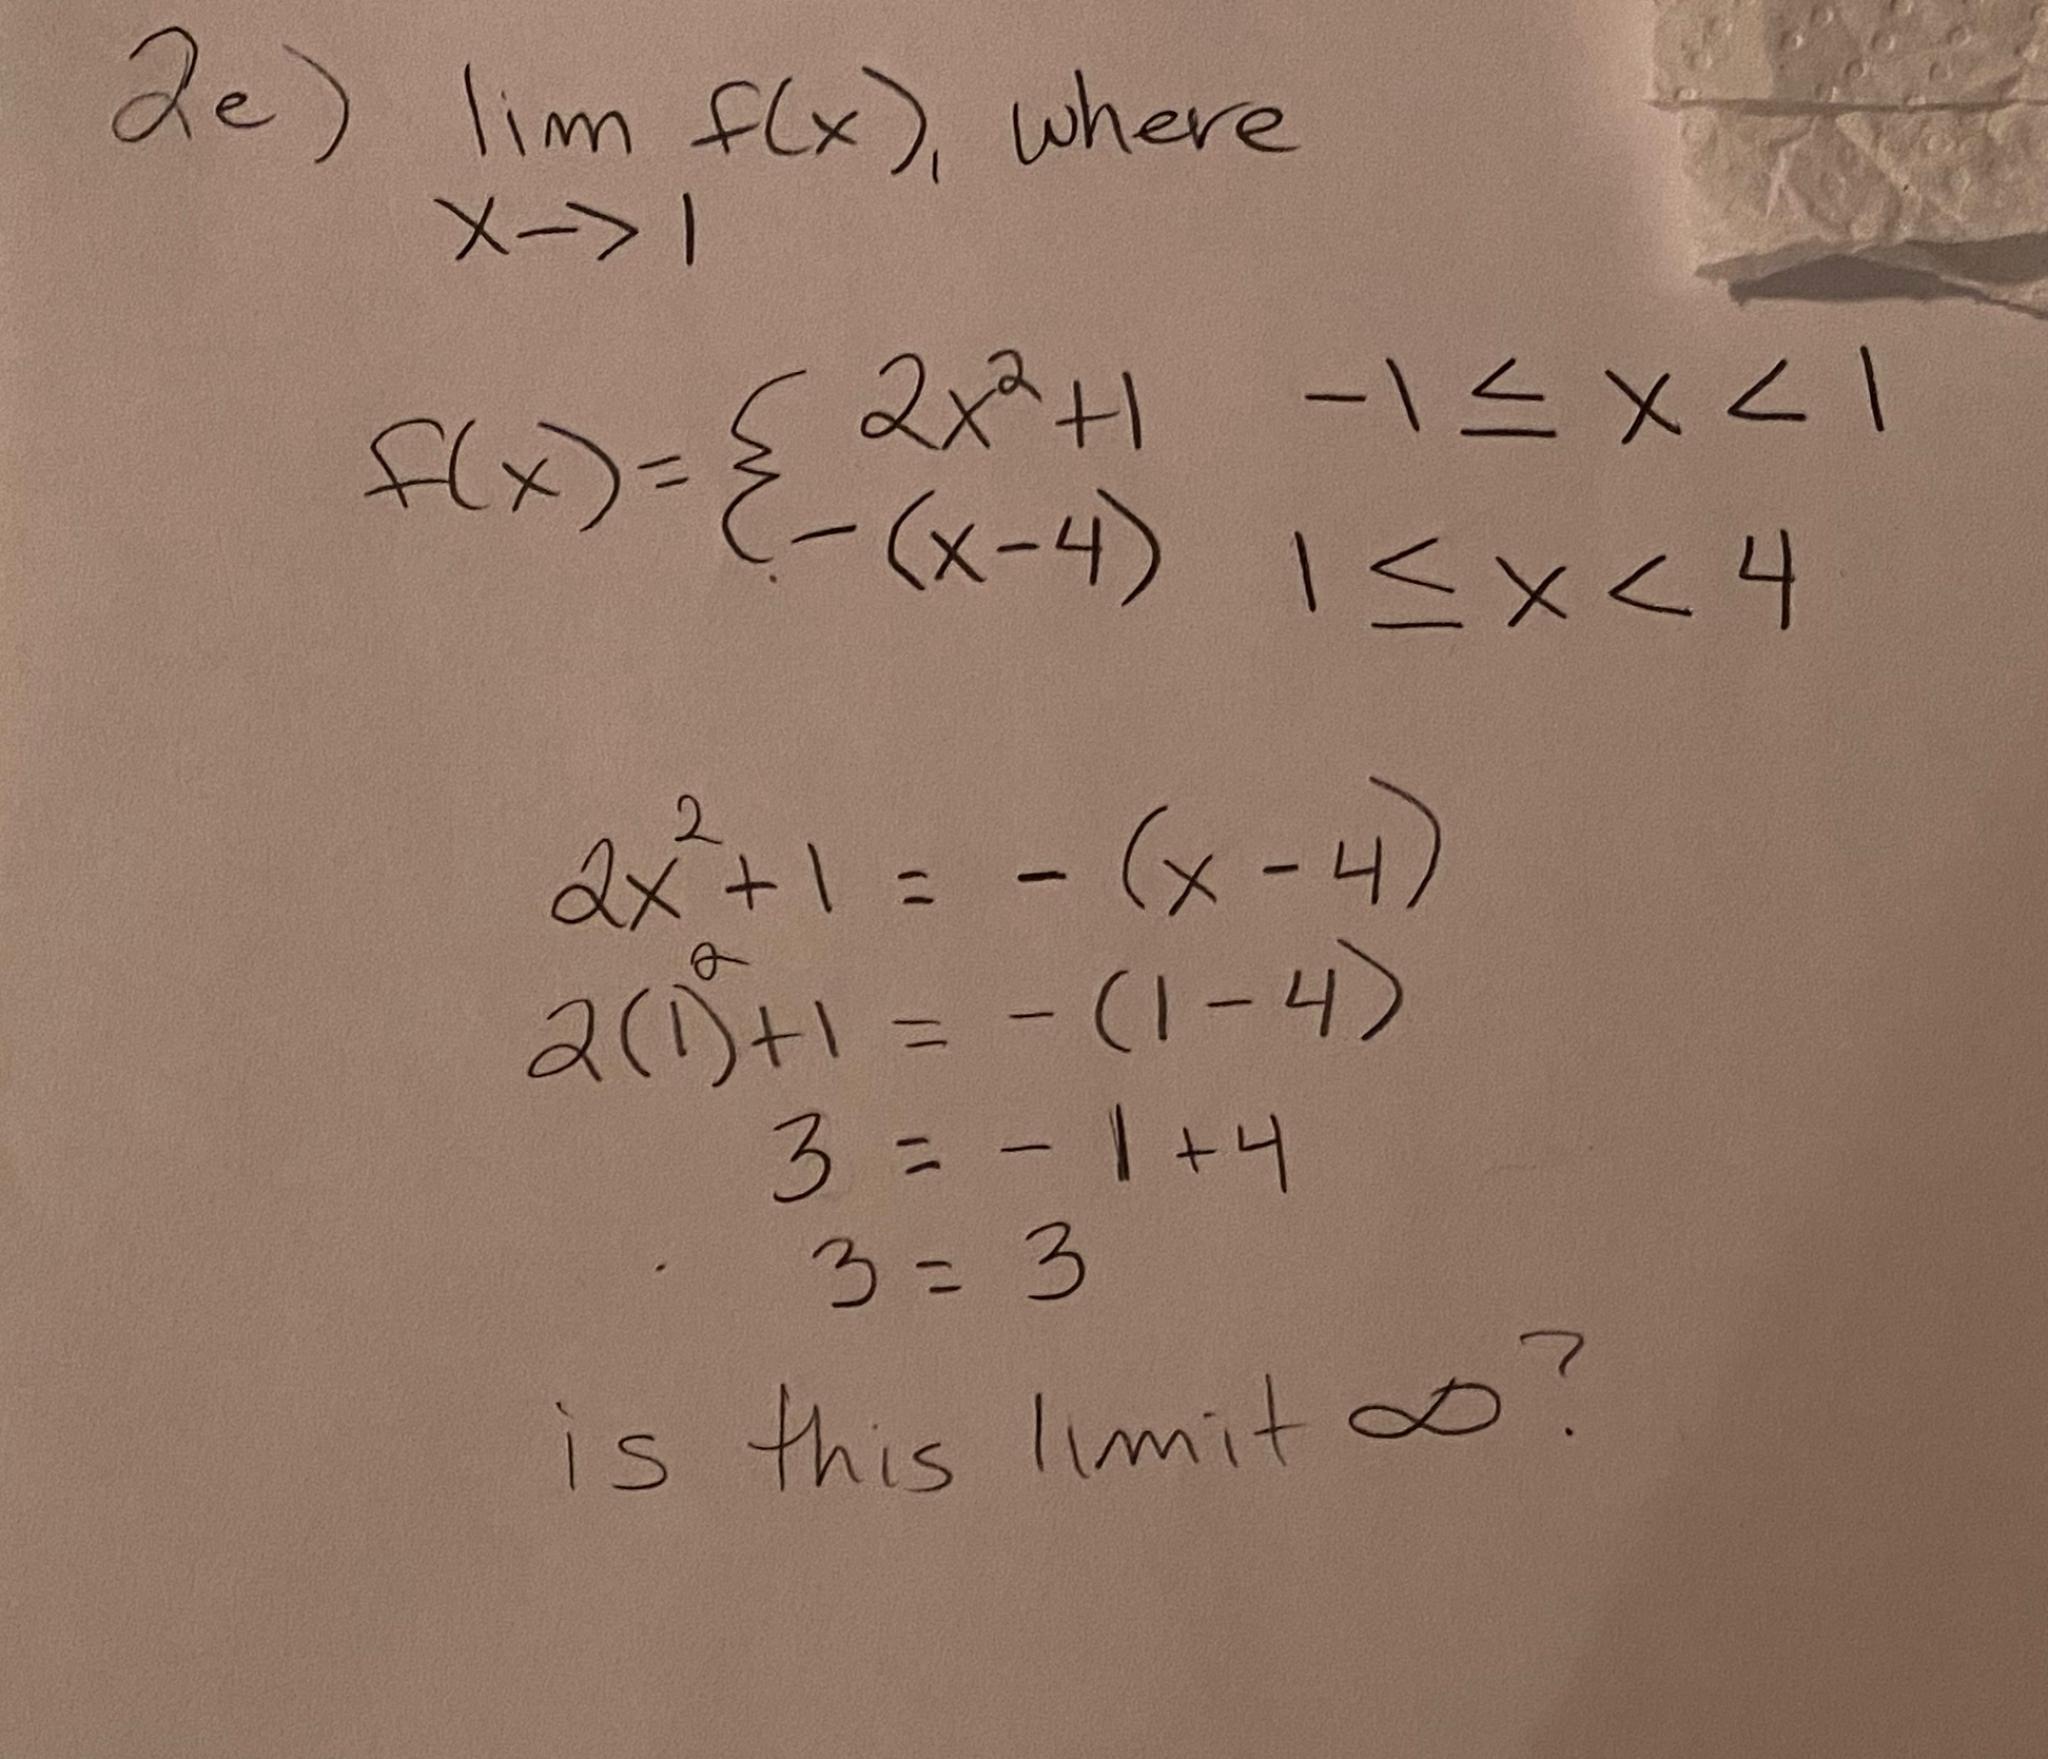 2e) lim f(x), where
x->1
f(x)= { 2x²+1 -1 ≤ x < 1
-(x-4) 1 ≤ x < 4
2x²+1 = -(x-4)
2(1)²+1 = -(1-4)
3 = -1+4
3 = 3
is this limit ∞?